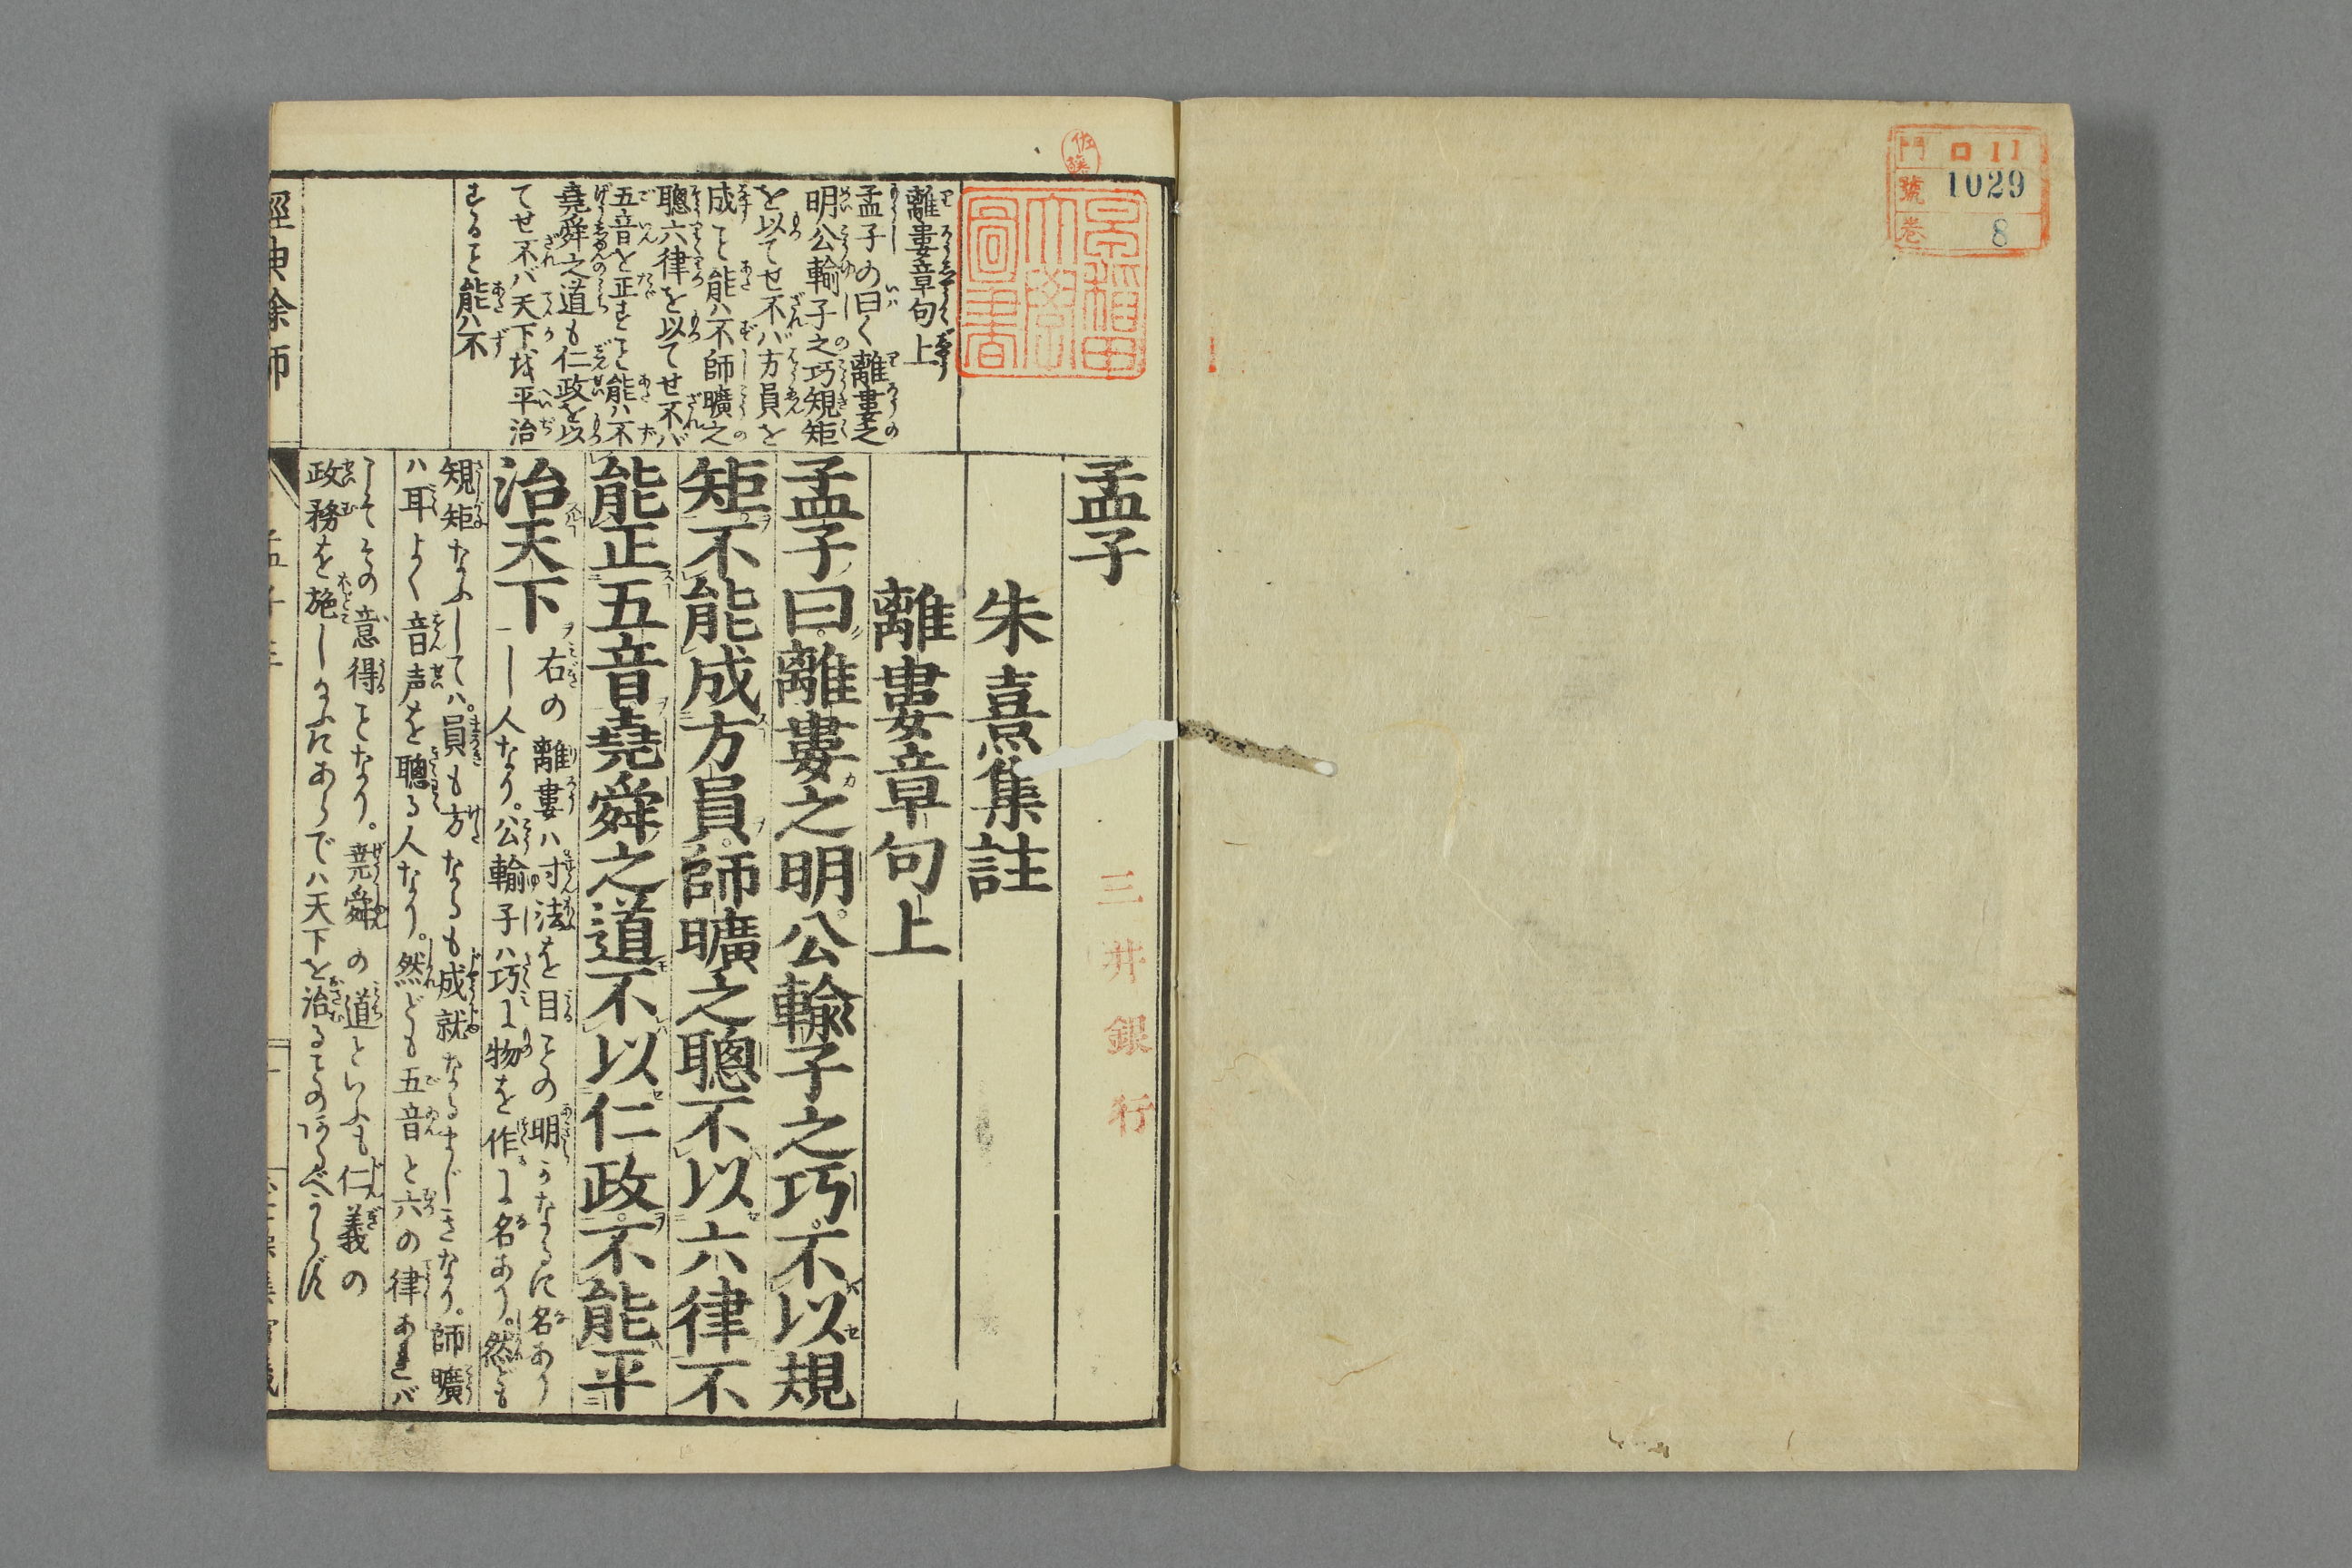 門 ロ11
號 1029
巻 8
佐藤
早稲田
大學
圖書
孟子
三井銀行
朱熹集註
離婁章句上
孟子曰離婁之明公輸子之巧不以規
矩不能成方員師曠之聰不以六律不
能正五音堯舜之道不以仁政不能平
治天下
右の離婁ハ寸法を目との明
し人なり。公輸子ハ巧に物を作に名あり。然ども
規矩なふしてハ。員も方なるも成就なるまじきなり。師曠
ハ耳よく音声を聰る人なり。然ども五音と六の律あれバ
こそその意得ことなり。堯舜の道といふも仁義の
政務を施し
離婁章句上
孟子の曰く離婁之
明公輸子之巧規矩
を以てせ不ハ方員を
成こと能ハ不師曠之
聰六律を以てせ不バ
五音を正すこと能ハ不
堯舜之道も仁政を以
てせ不バ天下を平治
することと能ハ不
經典餘師